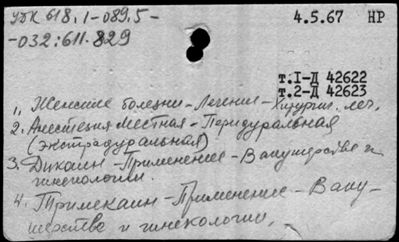 УДК 618.1-089.5-
-032:611.829
4.5.67 НР
т.I-Д 42622
т.2-Д 42623
1. Женские болезни - Лечение - Хирургич. леч.
2. Анестезия местная - Перидуральная
(экстрадуральная)
3. Дикаин - Применение - В акушерстве и
гинекологии.
4. Тримекаин - Применение - В аку-
шерстве и гинекологии.